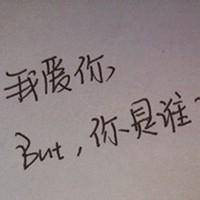 我爱你,
But,你是谁